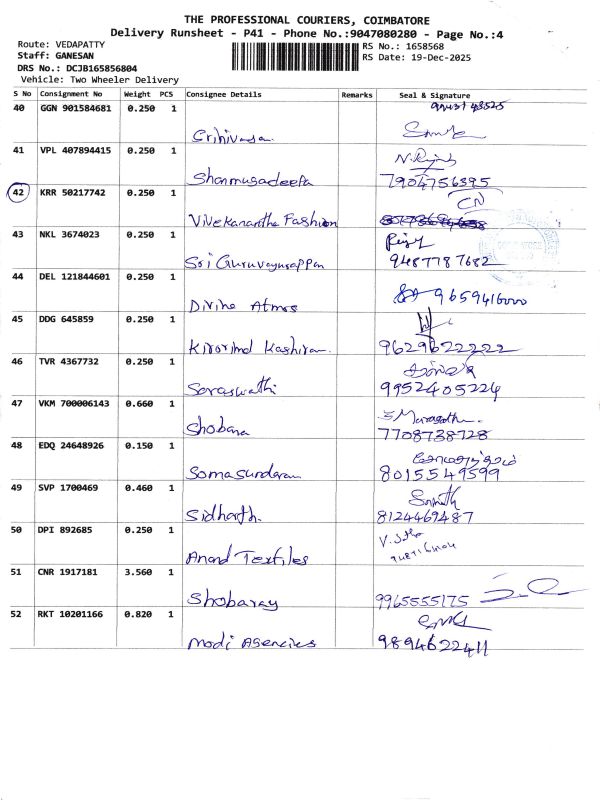 THE PROFESSIONAL COURIERS, COIMBATORE
Delivery Runsheet - P41 - Phone No.:9047080280 - Page No.:4
Route: VEDAPATTY RS No.: 1658568
Staff: GANESAN RS Date: 19-Dec-2025
DRS No.: DCJB165856804
Vehicle: Two Wheeler Delivery
S No Consignment No Weight PCS Consignee Details Remarks Seal & Signature
40 GGN 901584681 0.250 1
Srinivasa
41 VPL 407894415 0.250 1
Shanmugadeepa 7904756395
42 KRR 50217742 0.250 1 CN
Vivekanantha Fashion
43 NKL 3674023 0.250 1
Sri Guruvayurappan 9487787682
44 DEL 121844601 0.250 1
Divine Atmos 9659416000
45 DDG 645859 0.250 1
Kirorimd Kashiram 9629622222
46 TVR 4367732 0.250 1
Saraswathi 9952405224
47 VKM 700006143 0.660 1
Shobana 7708738728
48 EDQ 24648926 0.150 1
Somasundaram 8015549599
49 SVP 1700469 0.460 1
Sidharth. 8124469487
50 DPI 892685 0.250 1
Anand Textiles
51 CNR 1917181 3.560 1
Shobaray 9965555175
52 RKT 10201166 0.820 1
Modi Agencies 9894622411